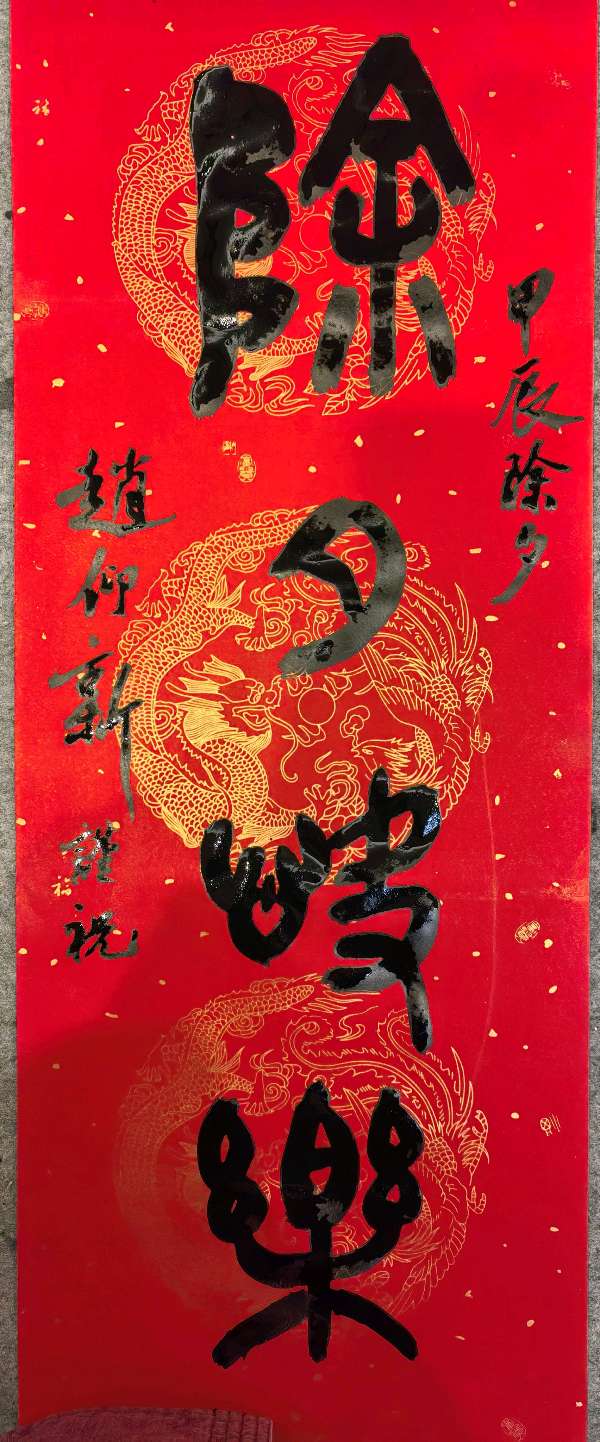 甲辰除夕
除夕快樂
趙仰新 謹祝